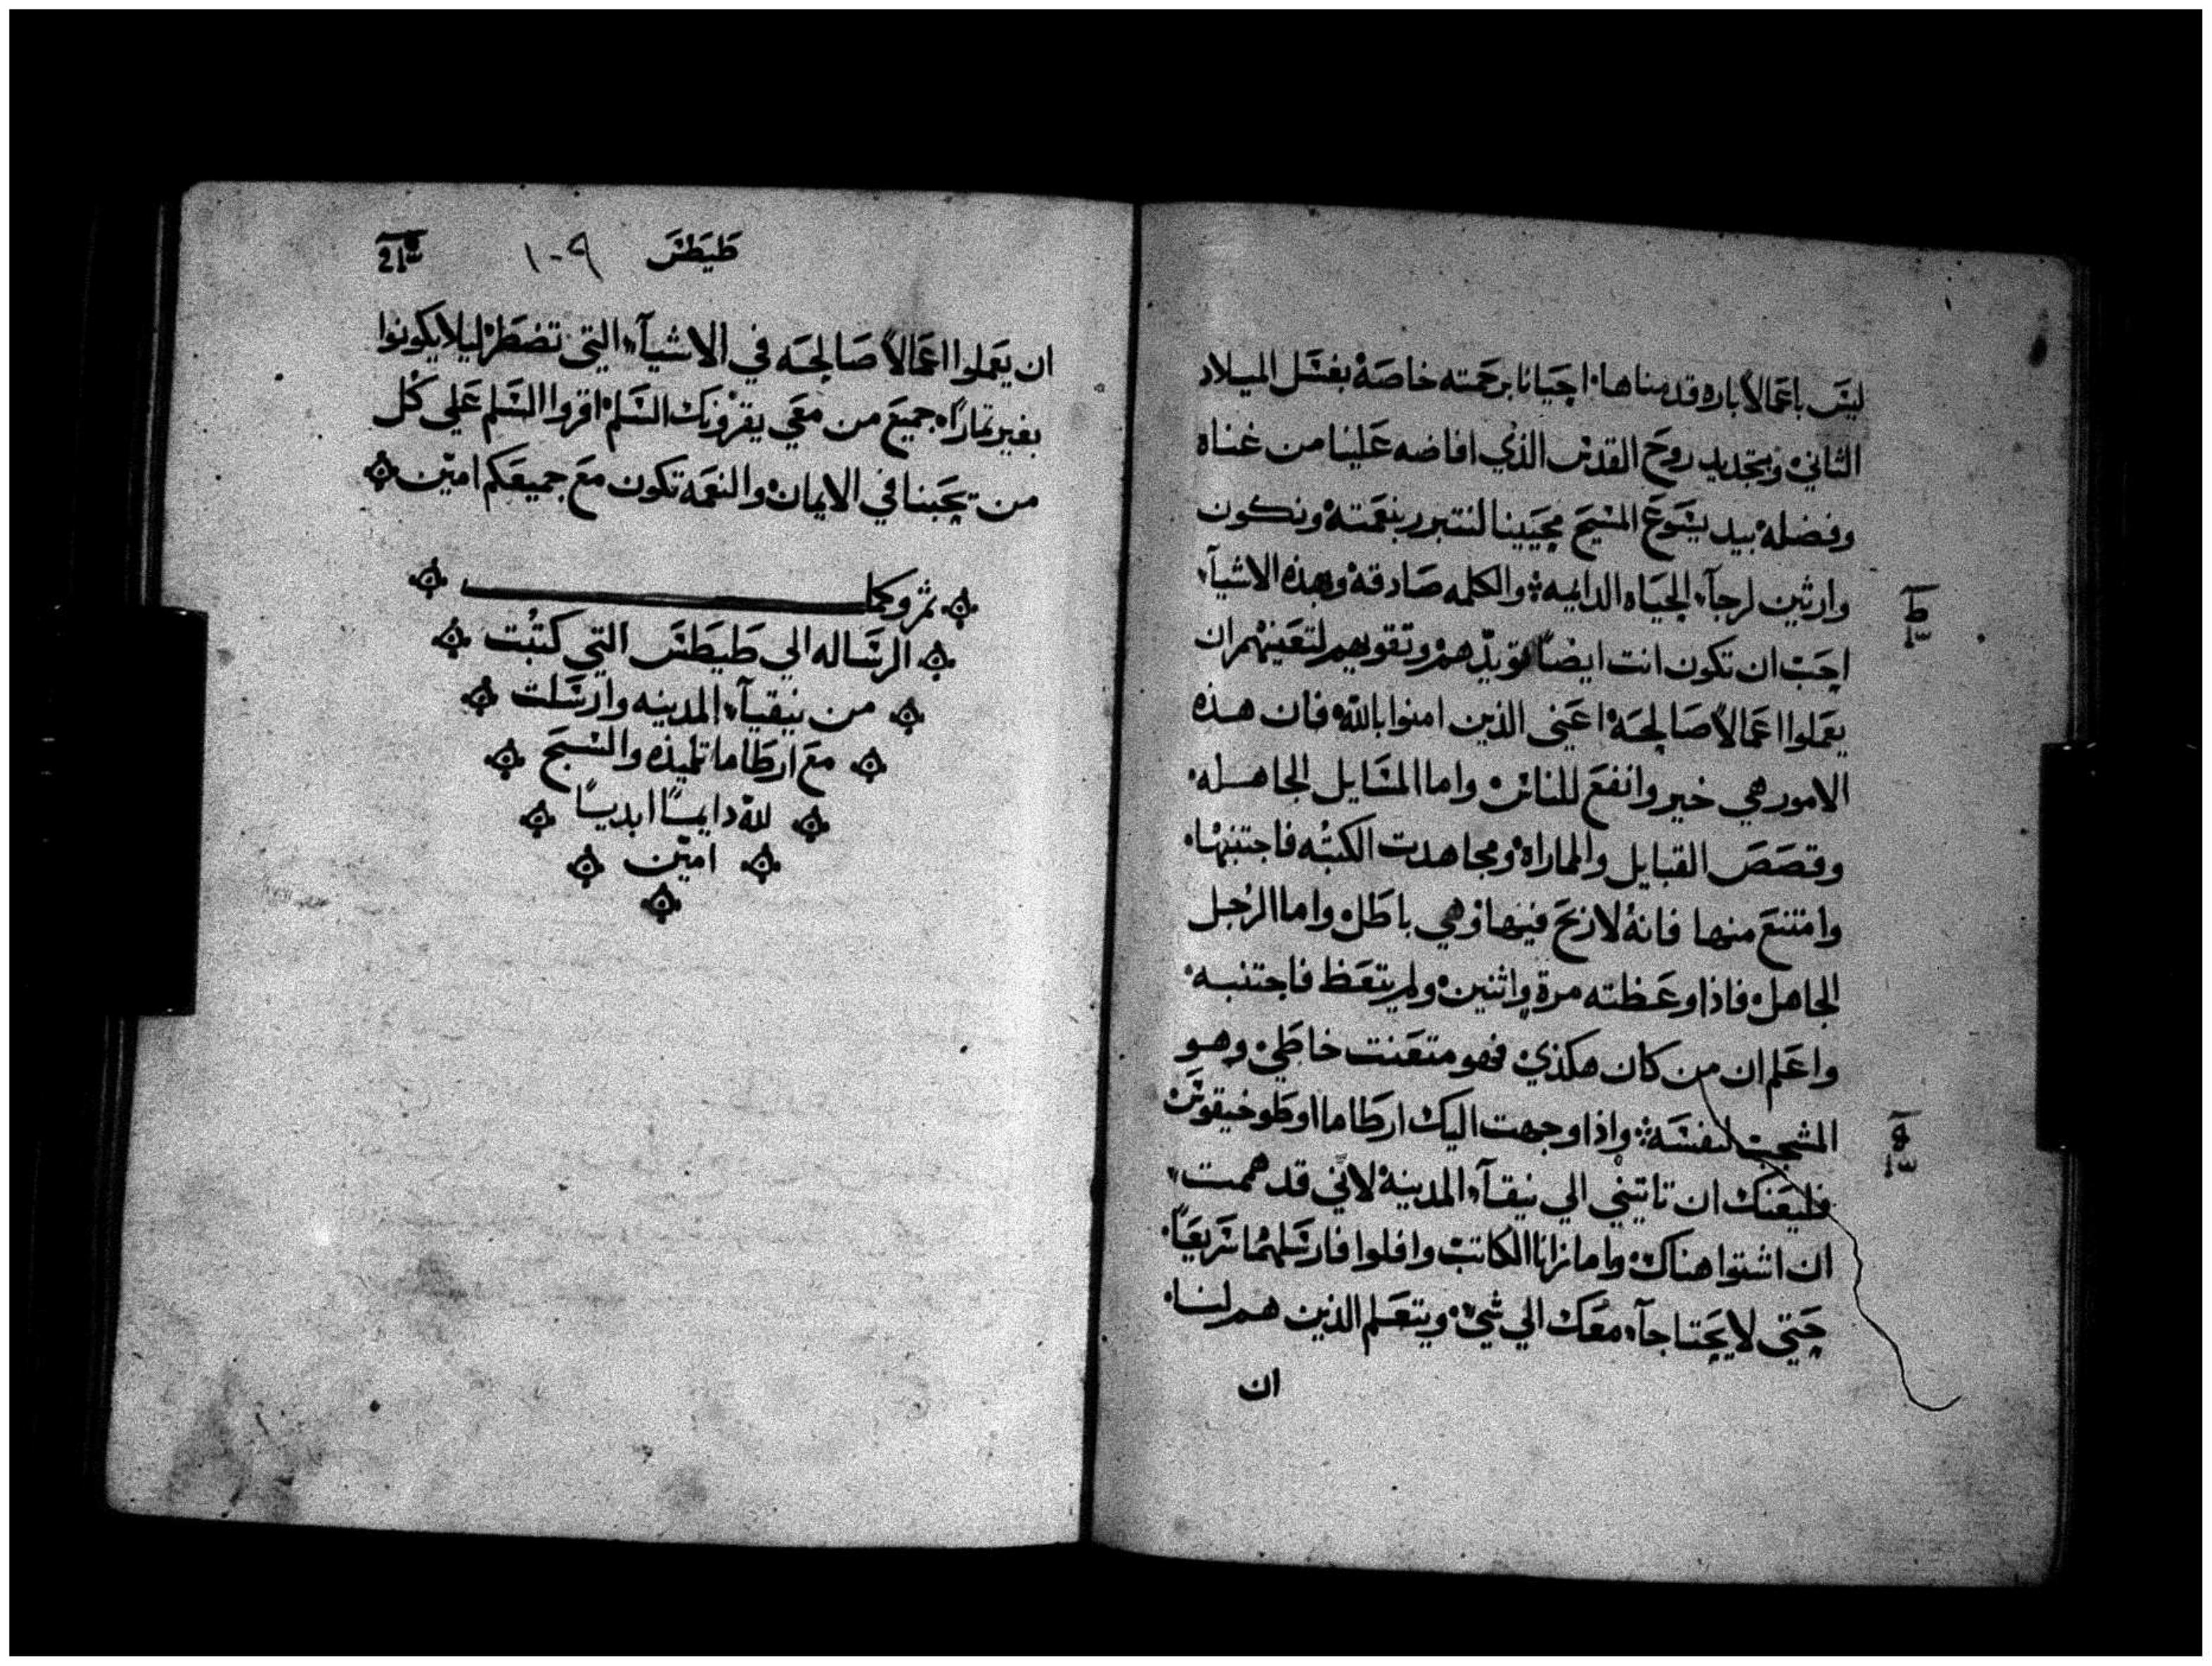 ليس باعمالاً باره قدمناها٠ احيانا برحمته خاصة بغسل الميلاد
الثاني وبتجديد روح القدس الذي افاضه علينا من غناه
وفضله بيد يسوع المسيح محيينا لنتبرر بنعمته ونكون
وارثين لرجآء الحياه الدايميه والكلمه صادقه وبهذه الاشيآء
احب ان تكون انت ايضاً تويدهم وتقويهم لتعينهم ان
يعملوا اعمالاً صالحة اعني الذين امنوا بالله فان هذه
الامور هي خير وانفع للناس واما المسايل الجاهله٠
وقصص القبايل والماراة ومجاهدت الكتبه فاجتنبها٠
وامتنع منها فانه لا ربح فيها وهي باطل واما الرجل
الجاهل فاذا وعظته مرة واثنين ولم يتعظ فاجتنبه٠
واعلم ان من كان هكذي فهو متعنت خاطي وهو
المشجب لنفسه واذا وجهت اليك ارطاما او طوخيقوس
فليعنك ان تاتيني الي نيقآء المدينة لاني قد هممت
ان اشتوا هناك واما زانا الكاتب وافلوا فارسلهما سريعاً٠
حتي لا يحتاجآء معك الي شي ويتعلم الذين هم لنا٠
ان
طيطس ١٠٩
ان يعملوا اعمالاً صالحه في الاشيآء التي تضطر ليلا يكونوا
بغير ثماراً٠ جميع من معي يقرونك السلم اقروا السلم علي كل
من يحبنا في الايمان والنعمه تكون مع جميعكم امين
تم وكما
الرساله الي طيطس التي كتبت
من نيقيآء المدينه وارسلت
مع ارطاما تلميذه والسبح
لله دايماً ابدياً
امين